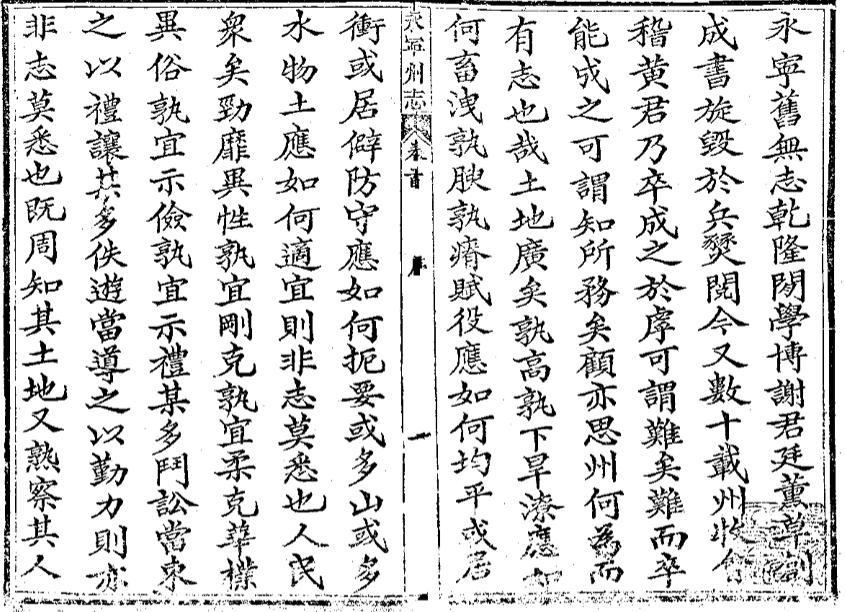 永寧舊無志乾隆間學博謝君廷薰草創
成書旋毀於兵燹閱今又數十載州牧會
稽黃君乃卒成之於虖可謂難矣難而卒
能成之可謂知所務矣顧亦思州何為而
有志也哉土地廣矣孰高孰下旱潦應如
何畜洩孰腴孰瘠賦役應如何均平或居
永寧州志 卷首 序 一
衝或居僻防守應如何扼要或多山或多
水物土應如何適宜則非志莫悉也人民
衆矣勁靡異性孰宜剛克孰宜柔克華樸
異俗孰宜示儉孰宜示禮某多鬥訟當束
之以禮讓某多佚遊當導之以勤力則亦
非志莫悉也既周知其土地又熟察其人